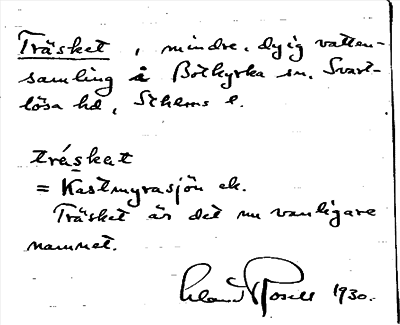 Träsket, mindre, dyig vatten-
samling i Botkyrka sn. Svart-
lösa hd, Sthlms l.
tráskat
= Kastmyrasjön ek.
Träsket är det nu vanligare
namnet.
1930.